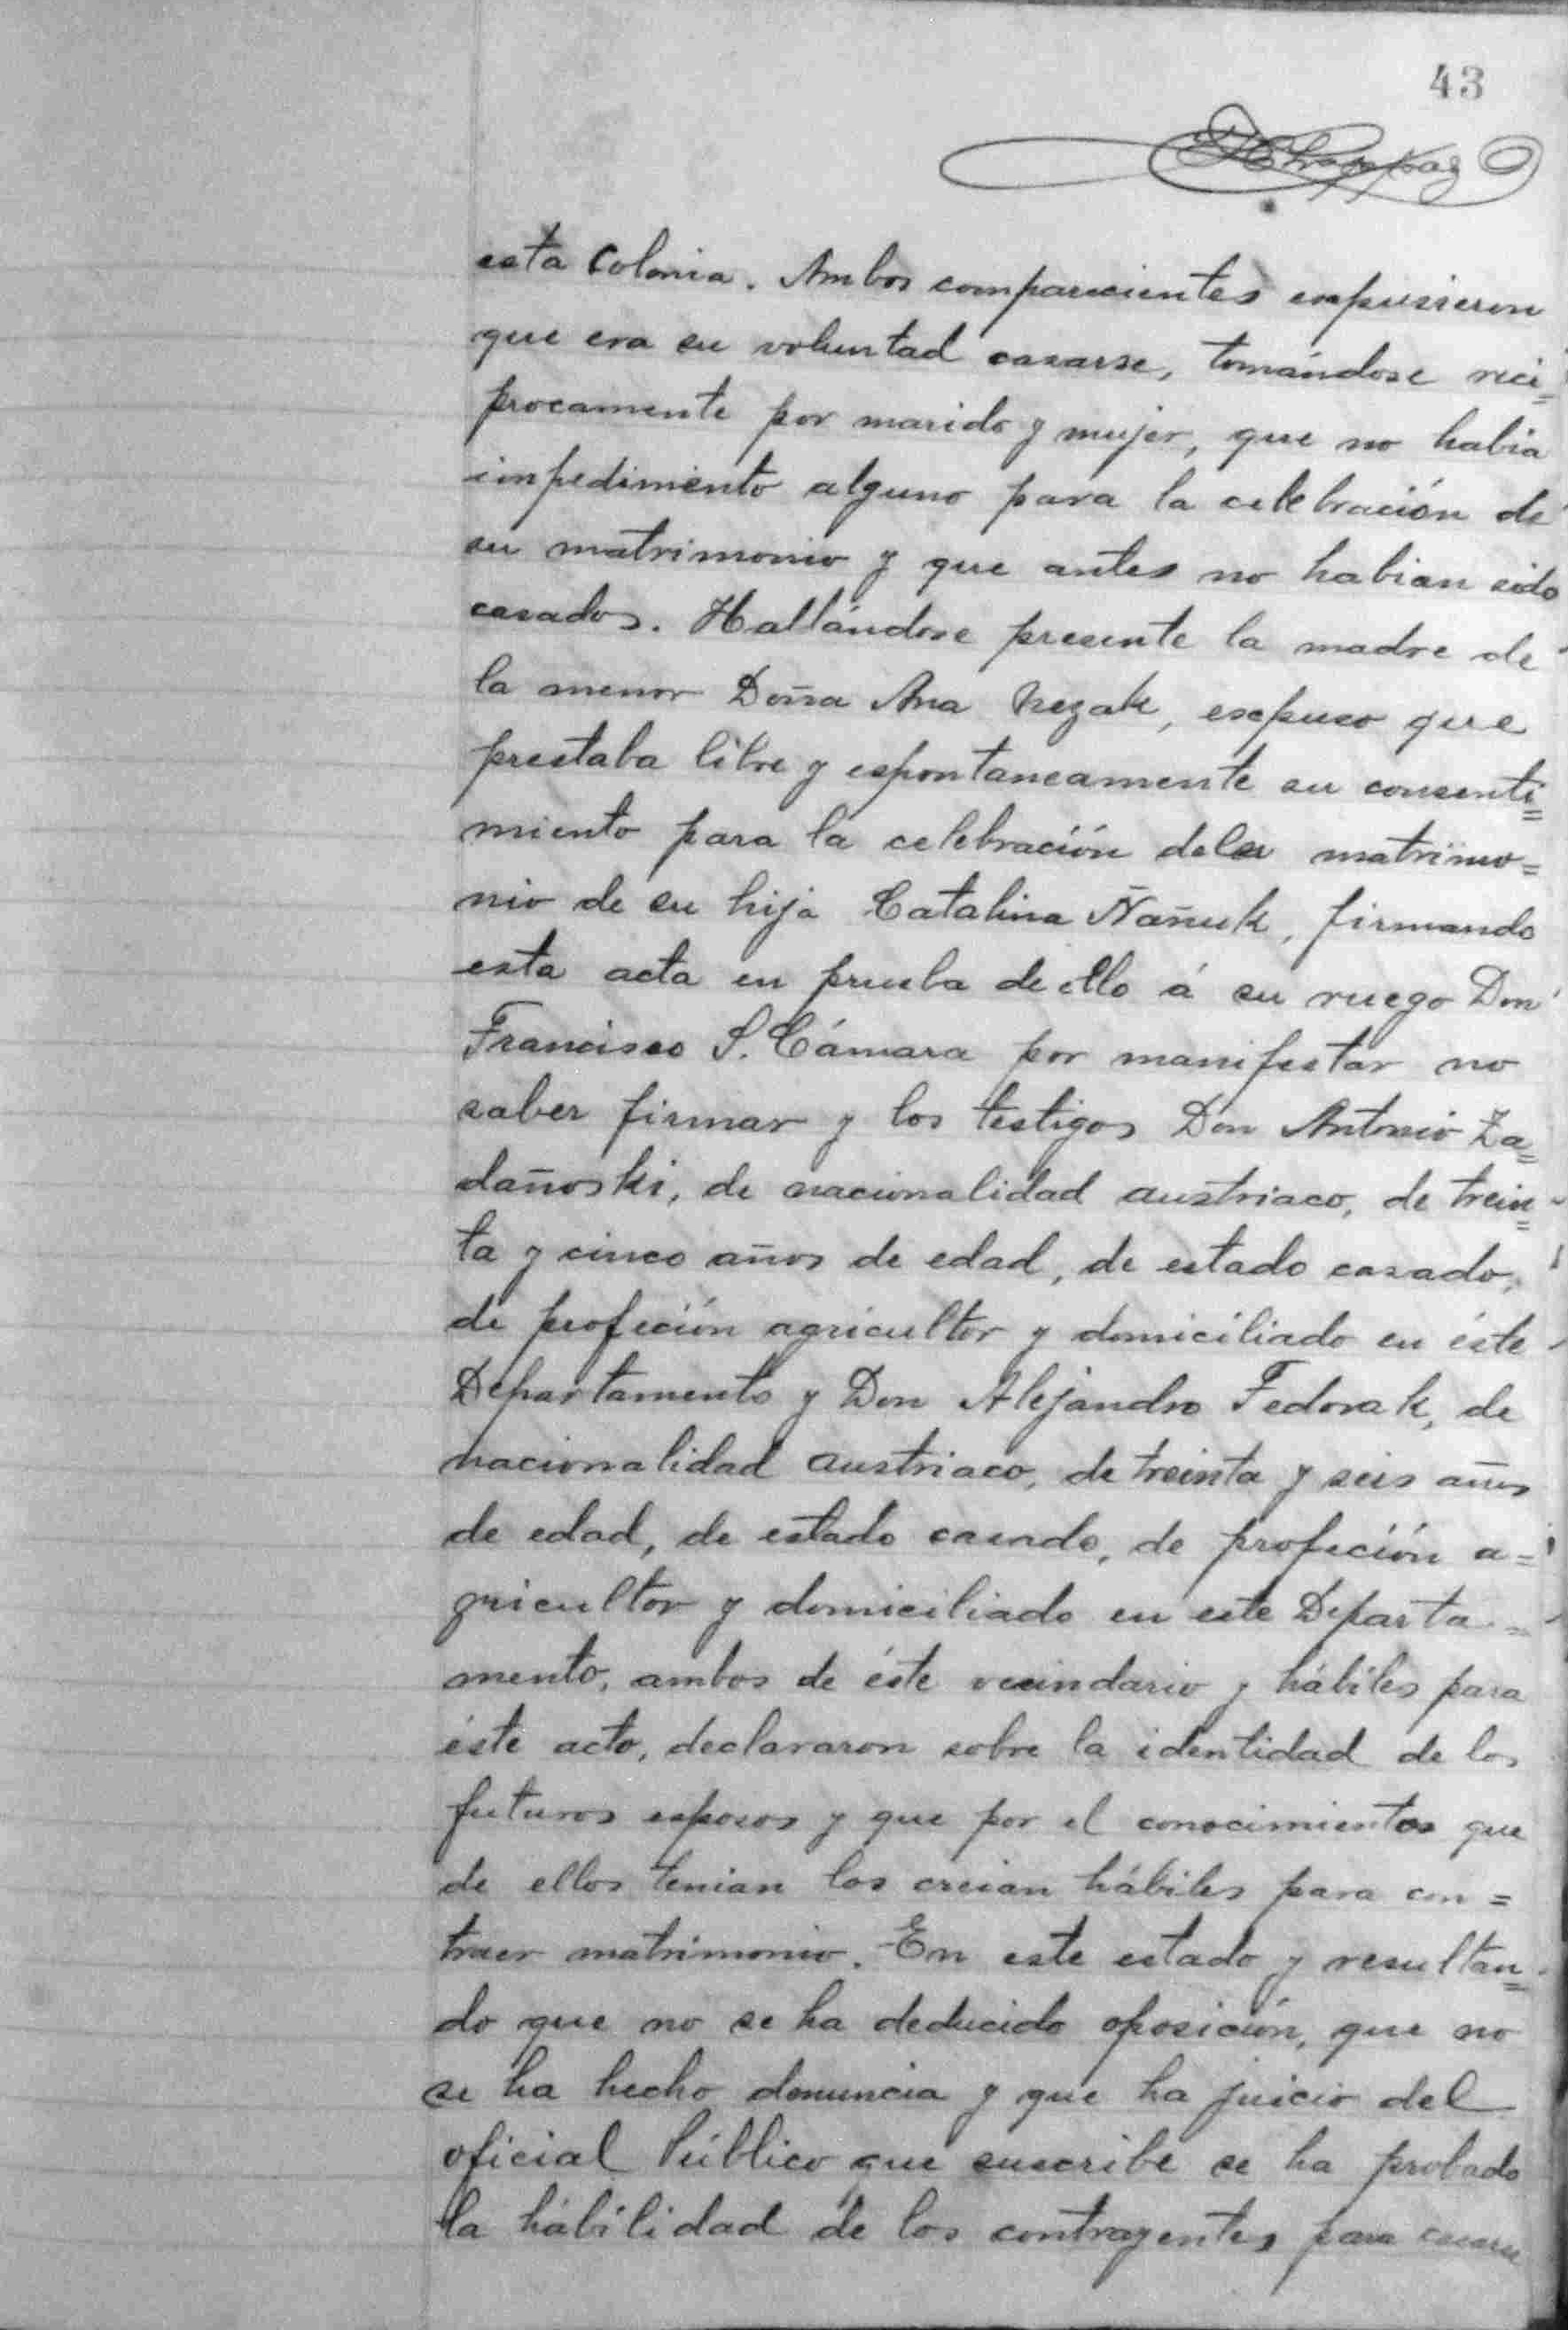 43
esta Colonia. Ambos comparecientes expusieron
que era su voluntad casarse, tomándose reci=
procamente por marido y mujer, que no habia
impedimento alguno para la celebración de
su matrimonio y que antes no habian sido
casados. Hallándose presente la madre de
la menor Doña Ana Nezak, expuso que
prestaba libre y espontaneamente su consenti=
miento para la celebración del matrimo=
nio de su hija Catalina Ñañuk, firmando
esta acta en prueba de ello á su ruego Don
Francisco S. Cámara por manifestar no
saber firmar y los testigos Don Antonio Za=
dañoski, de nacionalidad austriaco, de trein=
ta y cinco años de edad, de estado casado,
de profeción agricultor y domiciliado en éste
Departamento y Don Alejandro Fedorak, de
nacionalidad austriaco, de treinta y seis años
de edad, de estado casado, de profeción a=
gricultor y domiciliado en este Departa=
mento, ambos de éste vecindario y hábiles para
éste acto, declararon sobre la identidad de los
futuros esposos y que por el conocimientos que
de ellos tenian los creian hábiles para con=
traer matrimonio. En este estado y resultan=
do que no se ha deducido oposición, que no
se ha hecho denuncia y que ha juicio del
oficial Público que suscribe se ha probado
la hábilidad de los contrayentes para casarse